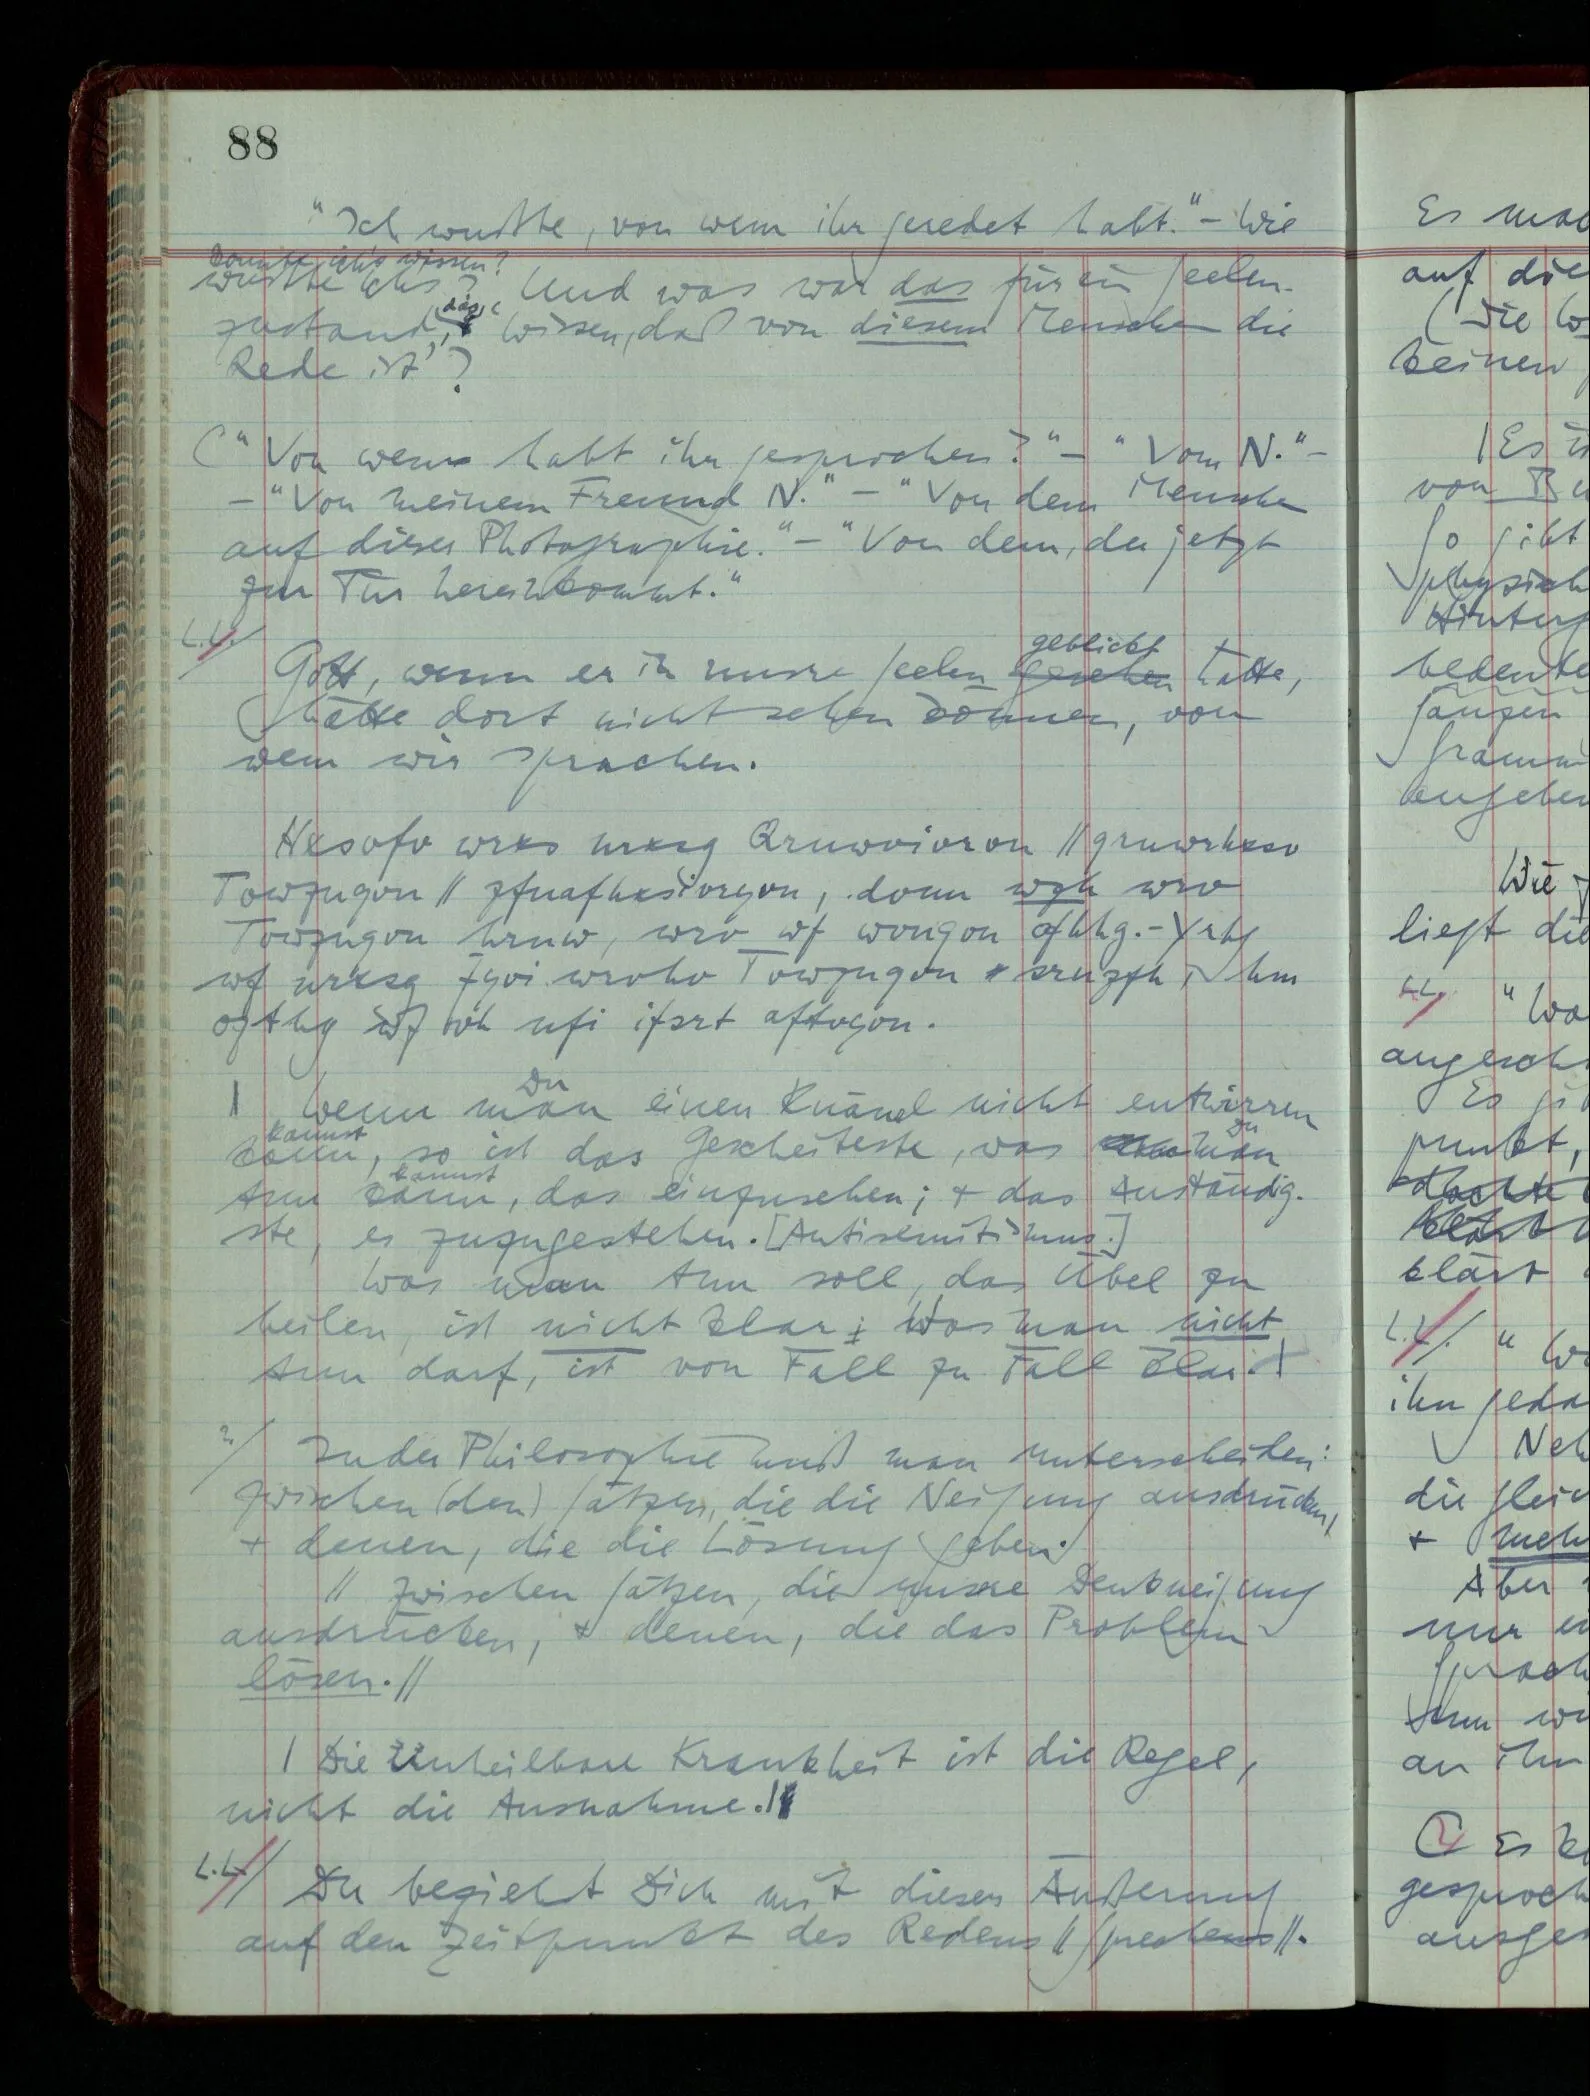 88
"Ich wußte, von wem ihr geredet habt." – Wie
konnte ich's wissen?
wußte ich's? Und was war das für ein Seelen-
zustand, das 'Wissen, daß von diesem Menschen die
Rede ist'?
("Von wem habt ihr gesprochen?" – "Vom N." –
– "Von meinem Freund N." – "Von dem Menschen
auf dieser Photographie." – "Von dem, der jetzt
zur Tür hereinkommt."
L.L.
geblickt
Gott, wenn er in unsre Seelen gesehen hätte,
hätte dort nicht sehen können, von
wem wir sprachen.
wrks nrksg //
Towzugon //
Towzugon hrnw, wrv wf
wf nrksg Towzugon
nfi
Du
| Wenn man einen Knäuel nicht entwirren
kannst Du
kann, so ist das Gescheiteste, was man
kannst
tun kann, das einzusehen; + das Anständig-
ste, es zuzugestehen. [Antisemitismus.]
Was man tun soll, das Übel zu
heilen, ist nicht klar; Was man nicht
tun darf, ist von Fall zu Fall klar. |
In der Philosophie muß man unterscheiden:
zwischen (den) Sätzen, die die Neigung ausdrücken,
+ denen, die die Lösung geben.
// zwischen Sätzen, die unsre Denkneigung
ausdrücken, + denen, die das Problem
lösen. //
| Die unheilbare Krankheit ist die Regel,
nicht die Ausnahme. |
L.L.
Du beziehst Dich mit dieser Äußerung
auf den Zeitpunkt des Redens // Sprechens //.
Es
auf die
(Die
keinen
| Es
von
So gibt
Hinterg
bedeute
ganzen
angeben
Wie
liest die
L.L. "Wa
Es
punkt,
klärt
L.L. "
ihn geda
Neh
die gleic
+ meh
Aber
nur
Sprach
tun
an ihn
Es
gesproch